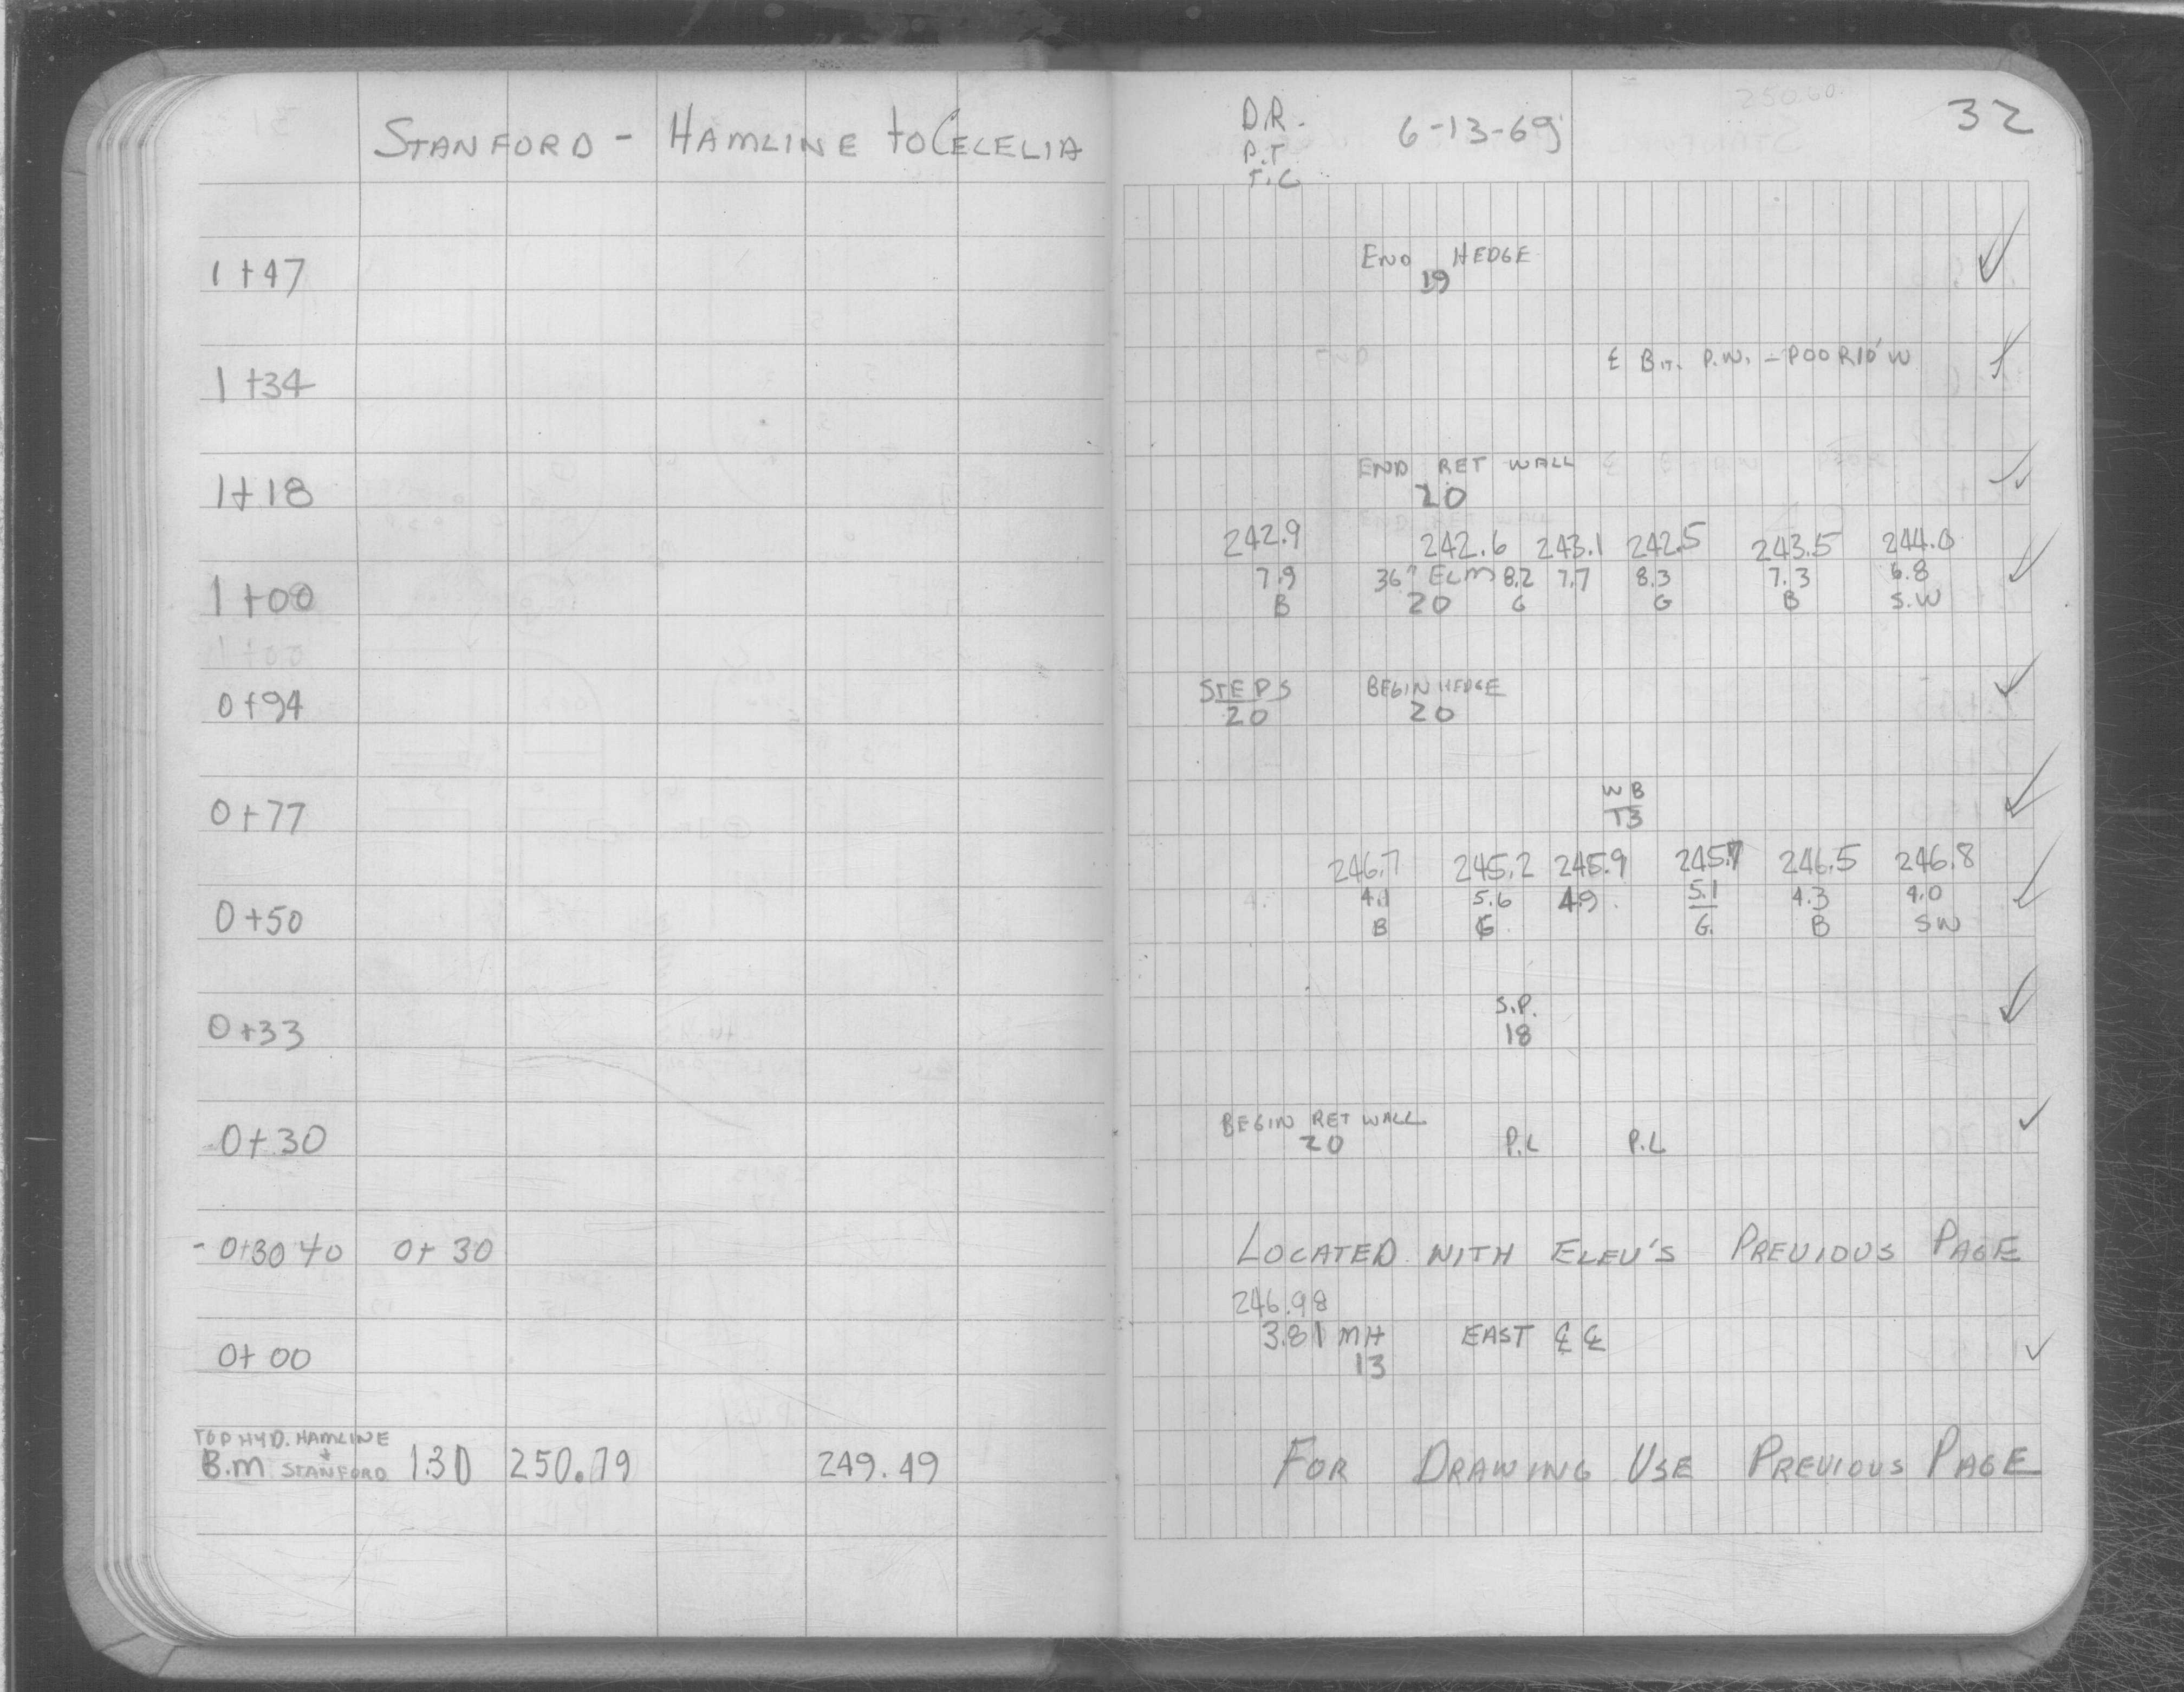 STANFORD - HAMLINE to CECELIA
D.R. 6-13-69 32
P.T.
T.C
1+47 END HEDGE
19
1+34 ℄ BIT. P.W. - POOR 10' W
1+18 END RET WALL
20
242.9 242.6 243.1 242.5 243.5 244.0
1+00 7.9 36" ELM 8.2 7.7 8.3 7.3 6.8
B 20 G G B S.W
1+00
0+94 STEPS BEGIN HEDGE
20 20
0+77 WB
13
246.7 245.2 245.9 245.7 246.5 246.8
0+50 4.1 5.6 4.9 5.1 4.3 4.0
B G G. B SW
0+33 S.P.
18
0+30 BEGIN RET WALL
20 P.L P.L
-0+30 to 0+30 LOCATED WITH ELEV'S PREVIOUS PAGE
246.98
0+00 3.81 MH EAST ℄ ℄
13
TOP HYD. HAMLINE
B.M + STANFORD 1.30 250.79 249.49 FOR DRAWING USE PREVIOUS PAGE